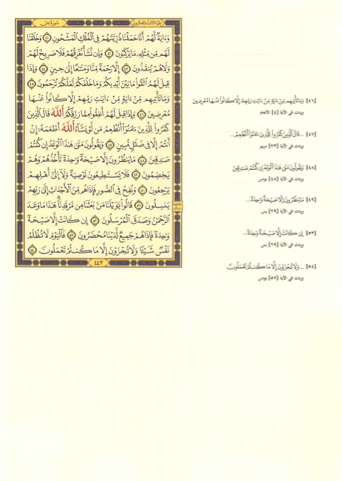 وَءَايَةٌ لَّهُمْ أَنَّا حَمَلْنَا ذُرِّيَّتَهُمْ فِى ٱلْفُلْكِ ٱلْمَشْحُونِ ٤١ وَخَلَقْنَا
لَهُم مِّن مِّثْلِهِۦ مَا يَرْكَبُونَ ٤٢ وَإِن نَّشَأْ نُغْرِقْهُمْ فَلَا صَرِيخَ لَهُمْ
وَلَا هُمْ يُنقَذُونَ ٤٣ إِلَّا رَحْمَةً مِّنَّا وَمَتَٰعًا إِلَىٰ حِينٍ ٤٤ وَإِذَا
قِيلَ لَهُمُ ٱتَّقُوا۟ مَا بَيْنَ أَيْدِيكُمْ وَمَا خَلْفَكُمْ لَعَلَّكُمْ تُرْحَمُونَ ٤٥
وَمَا تَأْتِيهِم مِّنْ ءَايَةٍ مِّنْ ءَايَٰتِ رَبِّهِمْ إِلَّا كَانُوا۟ عَنْهَا
مُعْرِضِينَ ٤٦ وَإِذَا قِيلَ لَهُمْ أَنفِقُوا۟ مِمَّا رَزَقَكُمُ ٱللَّهُ قَالَ ٱلَّذِينَ
كَفَرُوا۟ لِلَّذِينَ ءَامَنُوٓا۟ أَنُطْعِمُ مَن لَّوْ يَشَآءُ ٱللَّهُ أَطْعَمَهُۥٓ إِنْ
أَنتُمْ إِلَّا فِى ضَلَٰلٍ مُّبِينٍ ٤٧ وَيَقُولُونَ مَتَىٰ هَٰذَا ٱلْوَعْدُ إِن كُنتُمْ
صَٰدِقِينَ ٤٨ مَا يَنظُرُونَ إِلَّا صَيْحَةً وَٰحِدَةً تَأْخُذُهُمْ وَهُمْ
يَخِصِّمُونَ ٤٩ فَلَا يَسْتَطِيعُونَ تَوْصِيَةً وَلَآ إِلَىٰٓ أَهْلِهِمْ
يَرْجِعُونَ ٥٠ وَنُفِخَ فِى ٱلصُّورِ فَإِذَا هُم مِّنَ ٱلْأَجْدَاثِ إِلَىٰ رَبِّهِمْ
يَنسِلُونَ ٥١ قَالُوا۟ يَٰوَيْلَنَا مَنۢ بَعَثَنَا مِن مَّرْقَدِنَا هَٰذَا مَا وَعَدَ
ٱلرَّحْمَٰنُ وَصَدَقَ ٱلْمُرْسَلُونَ ٥٢ إِن كَانَتْ إِلَّا صَيْحَةً
وَٰحِدَةً فَإِذَا هُمْ جَمِيعٌ لَّدَيْنَا مُحْضَرُونَ ٥٣ فَٱلْيَوْمَ لَا تُظْلَمُ
نَفْسٌ شَيْـًٔا وَلَا تُجْزَوْنَ إِلَّا مَا كُنتُمْ تَعْمَلُونَ ٥٤
٤٤٣
[٤٦] وَمَا تَأْتِيهِم مِّنْ ءَايَةٍ مِّنْ ءَايَٰتِ رَبِّهِمْ إِلَّا كَانُوا۟ عَنْهَا مُعْرِضِينَ
وردت في الآية [٤] الأنعام
[٤٧] ...قَالَ ٱلَّذِينَ كَفَرُوا۟ لِلَّذِينَ ءَامَنُوٓا۟ أَنُطْعِمُ...
وردت في الآية [٧٣] مريم
[٤٨] وَيَقُولُونَ مَتَىٰ هَٰذَا ٱلْوَعْدُ إِن كُنتُمْ صَٰدِقِينَ
وردت في الآية [٤٨] يونس
[٤٩] مَا يَنظُرُونَ إِلَّا صَيْحَةً وَٰحِدَةً...
وردت في الآية [٢٩] يس
[٥٣] إِن كَانَتْ إِلَّا صَيْحَةً وَٰحِدَةً...
وردت في الآية [٢٩] يس
[٥٤] ...وَلَا تُجْزَوْنَ إِلَّا مَا كُنتُمْ تَعْمَلُونَ
وردت في الآية يونس